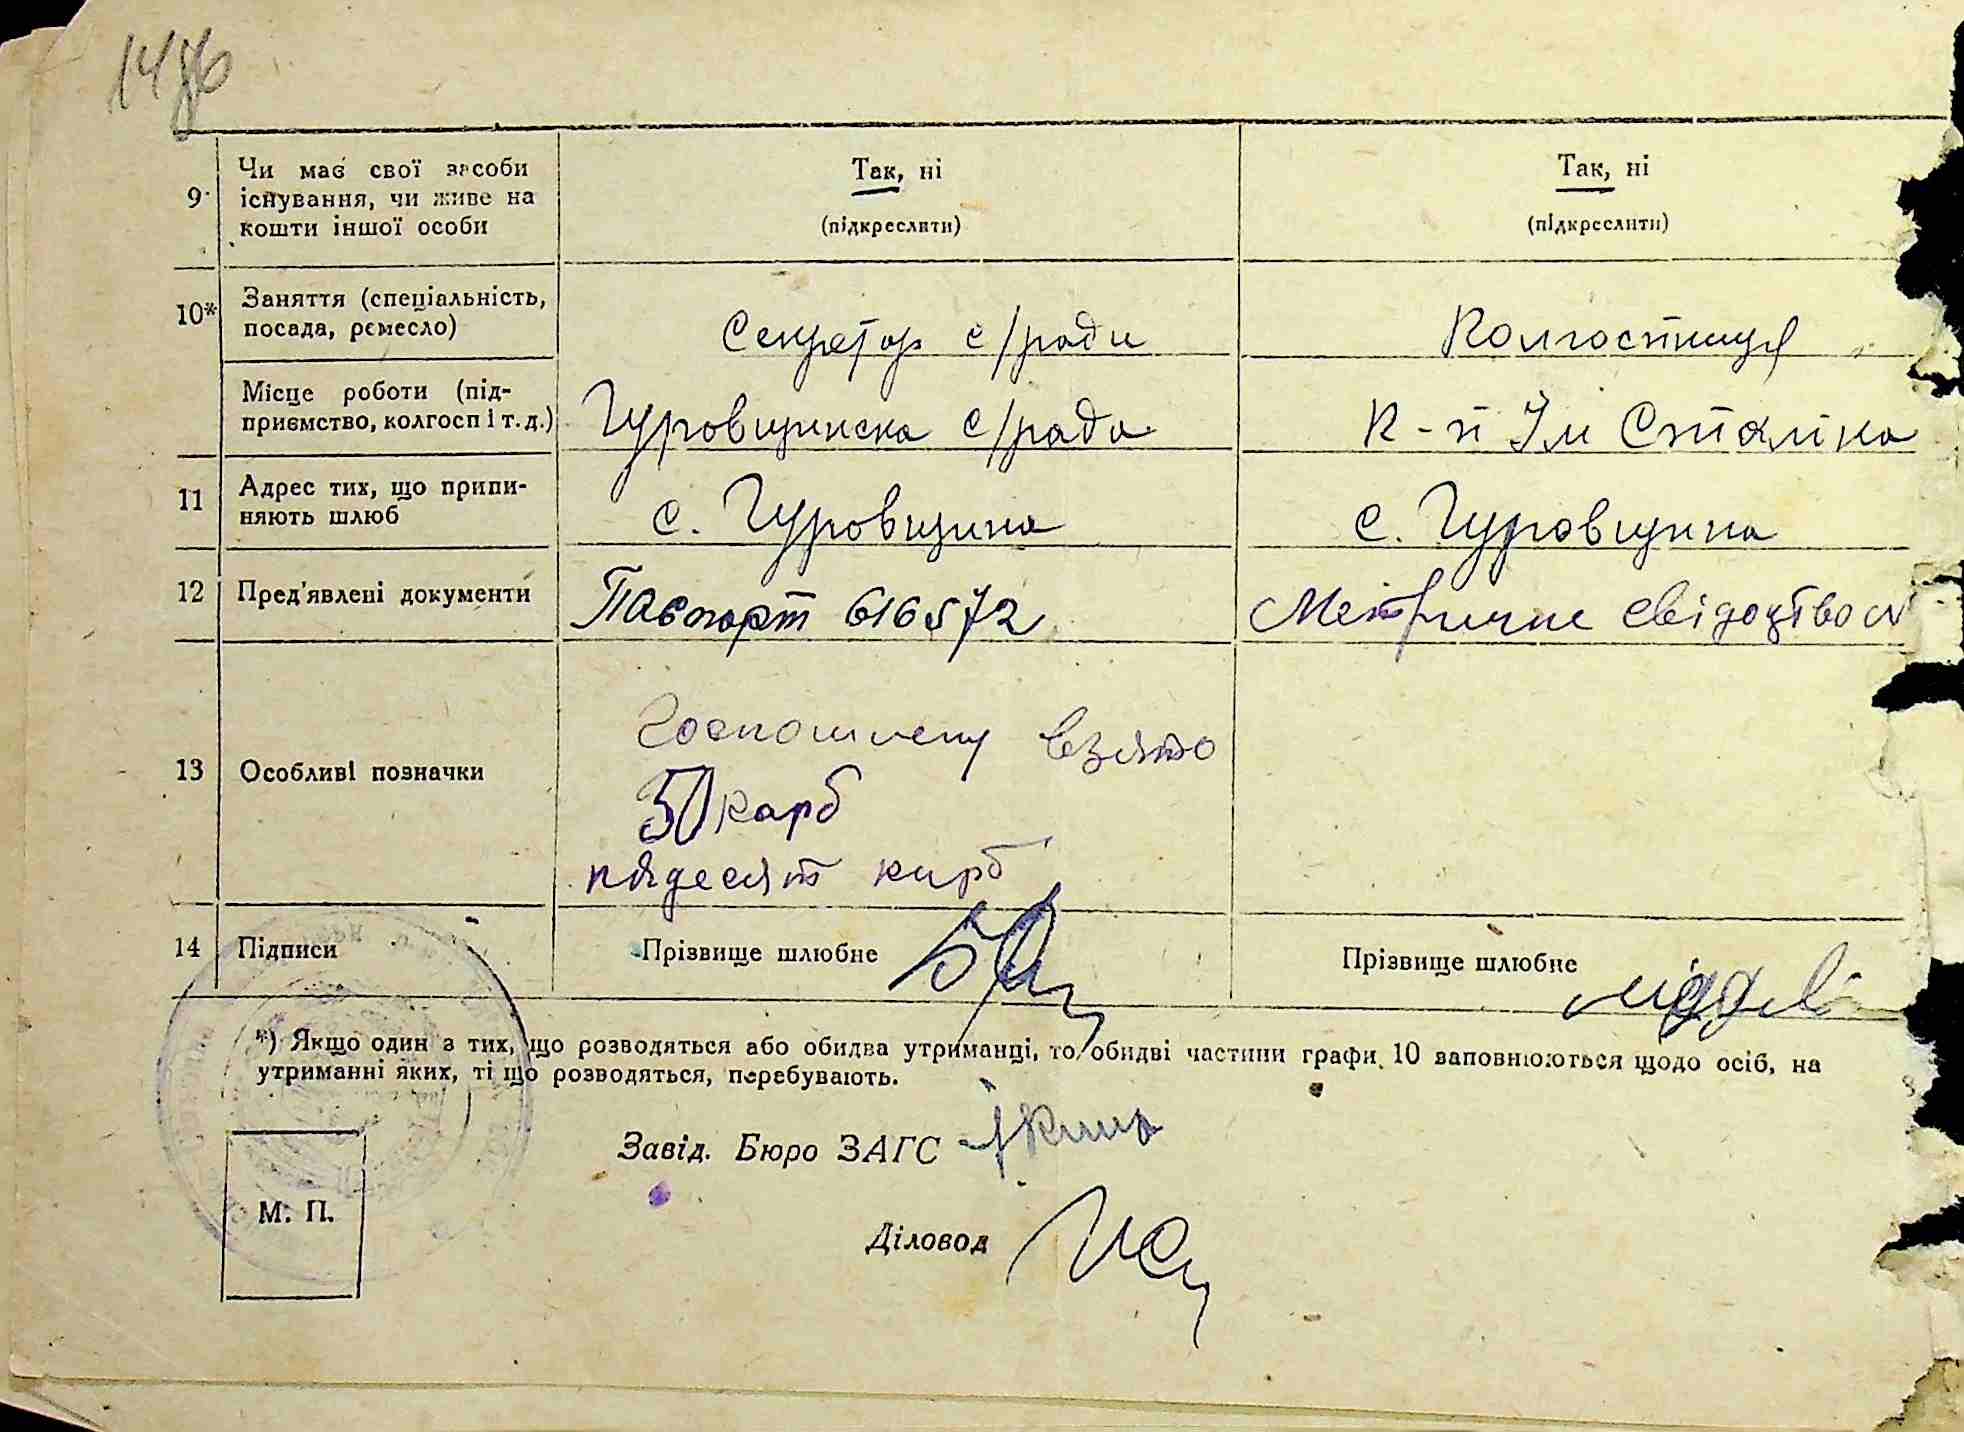 9. Чи має свої засоби існування, чи живе на кошти іншої особи
Так, ні
(підкреслити)
Так, ні
(підкреслити)
10* Заняття (спеціальність, посада, ремесло)
Секретар с/ради
Колгоспниця
Місце роботи (підприємство, колгосп і т. д.)
Гуровщинска с/рада
к-п Ім Сталіна
11 Адрес тих, що припиняють шлюб
с. Гуровщина
с. Гуровщина
12 Пред'явлені документи
Паспорт 616572
Метричне свідоцтво
13 Особливі позначки
Госпошлену взято
50 карб
пядесят карб
14 Підписи
Прізвище шлюбне
Прізвище шлюбне
*) Якщо один з тих, що розводяться або обидва утриманці, то обидві частини графи 10 заповнюються щодо осіб, на
утриманні яких, ті що розводяться, перебувають.
Завід. Бюро ЗАГС
Діловод
М. П.